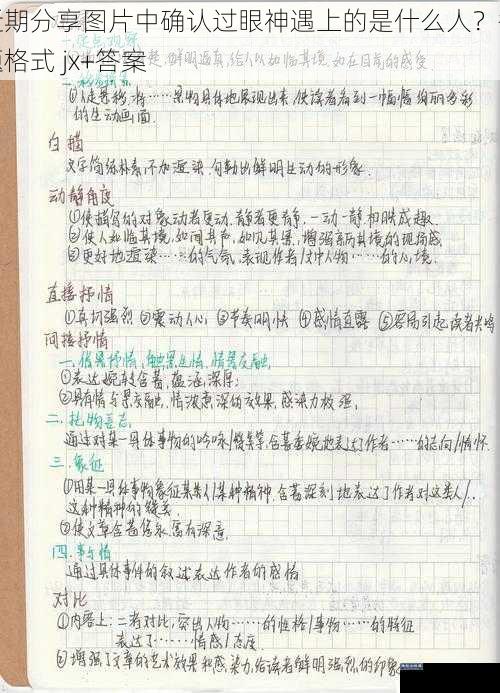 近期分享图片中确认过眼神遇上的是什么人?
格式 jx+答案
鲜明逼真,给人以如临其境,如在目前的感受
的生动画面.
白描
文字简练朴素,不加渲染,勾勒出鲜明生动的形象.
动静角度
①使描写的对象动者更动,静者更静,一动一静相映成趣.
②使人如临其境,如闻其声,如见其景,增强身历其境的现场感.
③更好地渲染……的气氛,表现作者/文中人物……的心境.
直接抒情
①真切强烈 ②震动人心 ③节奏明快 ④感情直露 ⑤容易引起读者共鸣
间接抒情
一.借景抒情,触景生情,情景交融
①表达婉转含蓄,蕴涵深厚;
②具有情与景交融,情浓意深的效果,感染力极强.
二.托物言志
通过对某一具体事物的吟咏/赞美等,含蓄委婉地表达了作者……的志向/情怀.
三.象征
①用某一具体事物象征某类人/某种精神,含蓄深刻地表达了作者对这类人/..
这种精神的赞美.
②使文章含蓄隽永,富有深意.
四.事与情
通过具体事件的叙述表达作者的感情
对比
①内容上:二者对比,突出人物……的性格/事物……的特征
表达了……情感/态度.
②增强了文章的艺术效果和感染力,给读者鲜明强烈的印象